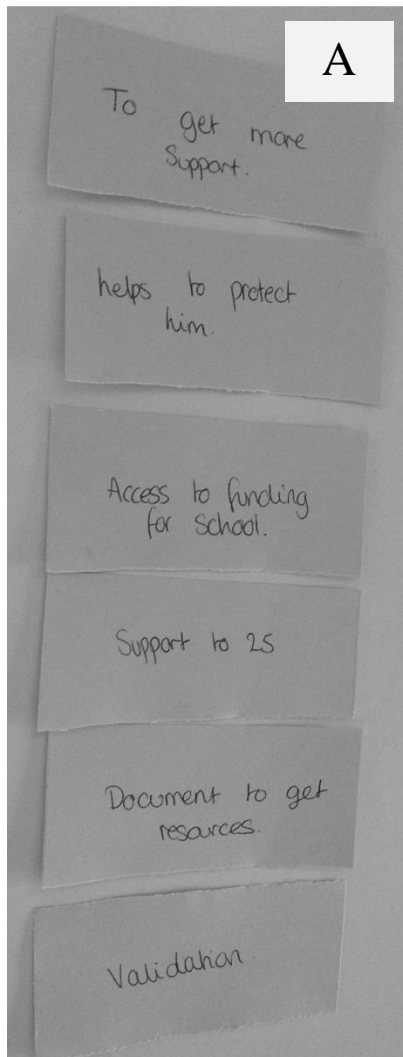 A
To get more
Support.
helps to protect
him.
Access to funding
for School.
Support to 25
Document to get
resources.
Validation.